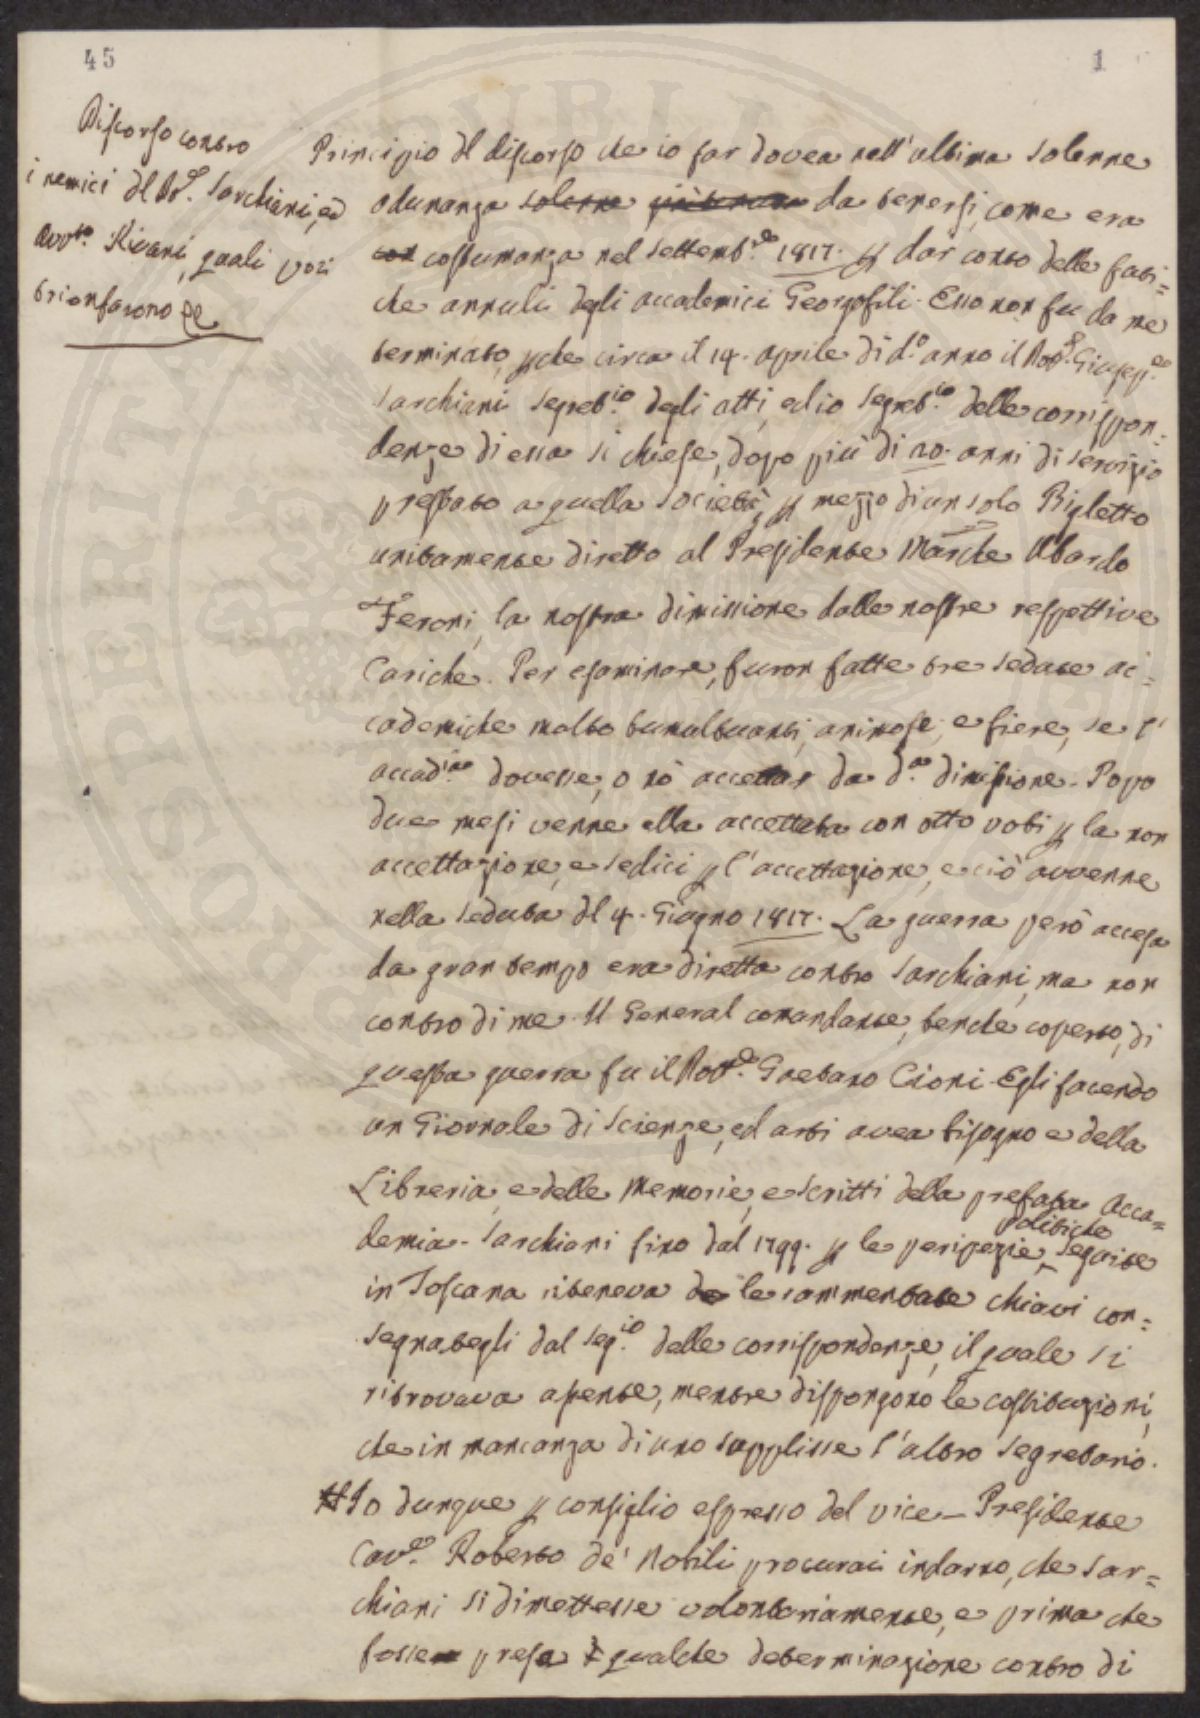 45
1
Discorso contro
i nemici del Dott.r Sarchiani, ed
Avv.to Rivani, quali poi
trionfarono &c
Principio del discorso che io far dovea nell'ultima solenne
adunanza solenne da tenersi, come era
con costumanza nel Settemb.e 1817. p dar conto delle fati=
che annuali degli accademici Georgofili. Esso non fu da me
terminato, pche circa il 14. Aprile di d.o anno il Dott.r Giusep.e
Sarchiani Segret.io degli atti, ed io Segret.io delle corrispon=
denze di essa si chiese, dopo più di 20. anni di servizio
prestato a quella società, p mezzo di un solo Biglietto
unitamente diretto al Presidente Marche Ubaldo
Feroni, la nostra dimissione dalle nostre respettive
Cariche. Per esaminare, furon fatte tre sedute ac=
cademiche molto tumultuanti, animose, e fiere, se l'
accad.ia dovesse, o nò accettar da d.a dimissione. Dopo
due mesi venne ella accettata con otto voti p la non
accettazione, e sedici p l'accettazione, e ciò avvenne
nella seduta del 4. Giugno 1817. La guerra però accesa
da gran tempo era diretta contro Sarchiani, ma non
contro di me. Il General comandante, benche coperto, di
questa guerra fu il Dott.e Gaetano Cioni. Egli facendo
un Giornale di Scienze, ed arti avea bisogno e della
Libreria, e delle Memorie, e scritti della prefata Acca=
demia. Sarchiani fino dal 1799. p le peripezie politiche seguite
in Toscana riteneva de le rammentate chiavi con=
segnategli dal Seg.io delle corrispondenze, il quale si
ritrovava assente, mentre dispongono le costituzioni,
che in mancanza di uno supplisse l'altro Segretario.
Io dunque p consiglio espresso del vice-Presidente
Cav.e Roberto de' Nobili procurai indarno, che Sar=
chiani si dimettesse volontariamente, e prima che
fosse presa qualche determinazione contro di